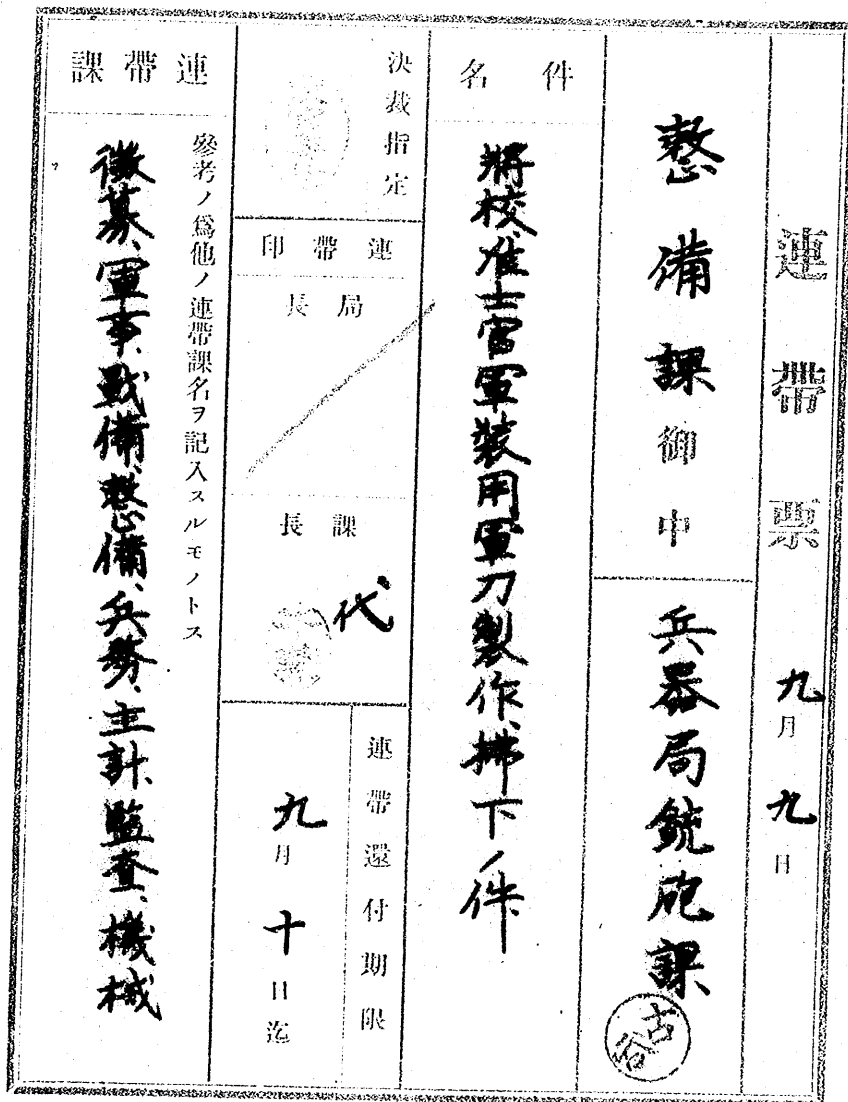 連帶票 九月九日
整備課御中
兵器局銃砲課
古谷
件名
將校、准士官軍裝用軍刀製作、拂下ノ件
決裁指定
連帶印
局長
課長
代
連帶還付期限
九月十日迄
連帶課
參考ノ爲他ノ連帶課名ヲ記入スルモノトス
徴募、軍事、戰備、整備、兵務、主計、監査、機械